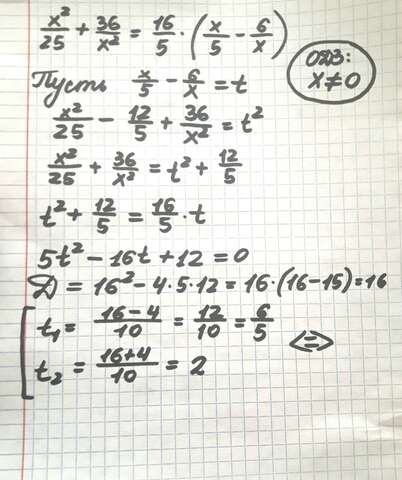 x²/25 + 36/x² = 16/5 · (x/5 − 6/x)
ОДЗ:
x≠0
Пусть x/5 − 6/x = t
x²/25 − 12/5 + 36/x² = t²
x²/25 + 36/x² = t² + 12/5
t² + 12/5 = 16/5 · t
5t² − 16t + 12 = 0
D = 16² − 4·5·12 = 16·(16−15) = 16
[ t₁ = (16−4)/10 = 12/10 = 6/5
t₂ = (16+4)/10 = 2 <=>